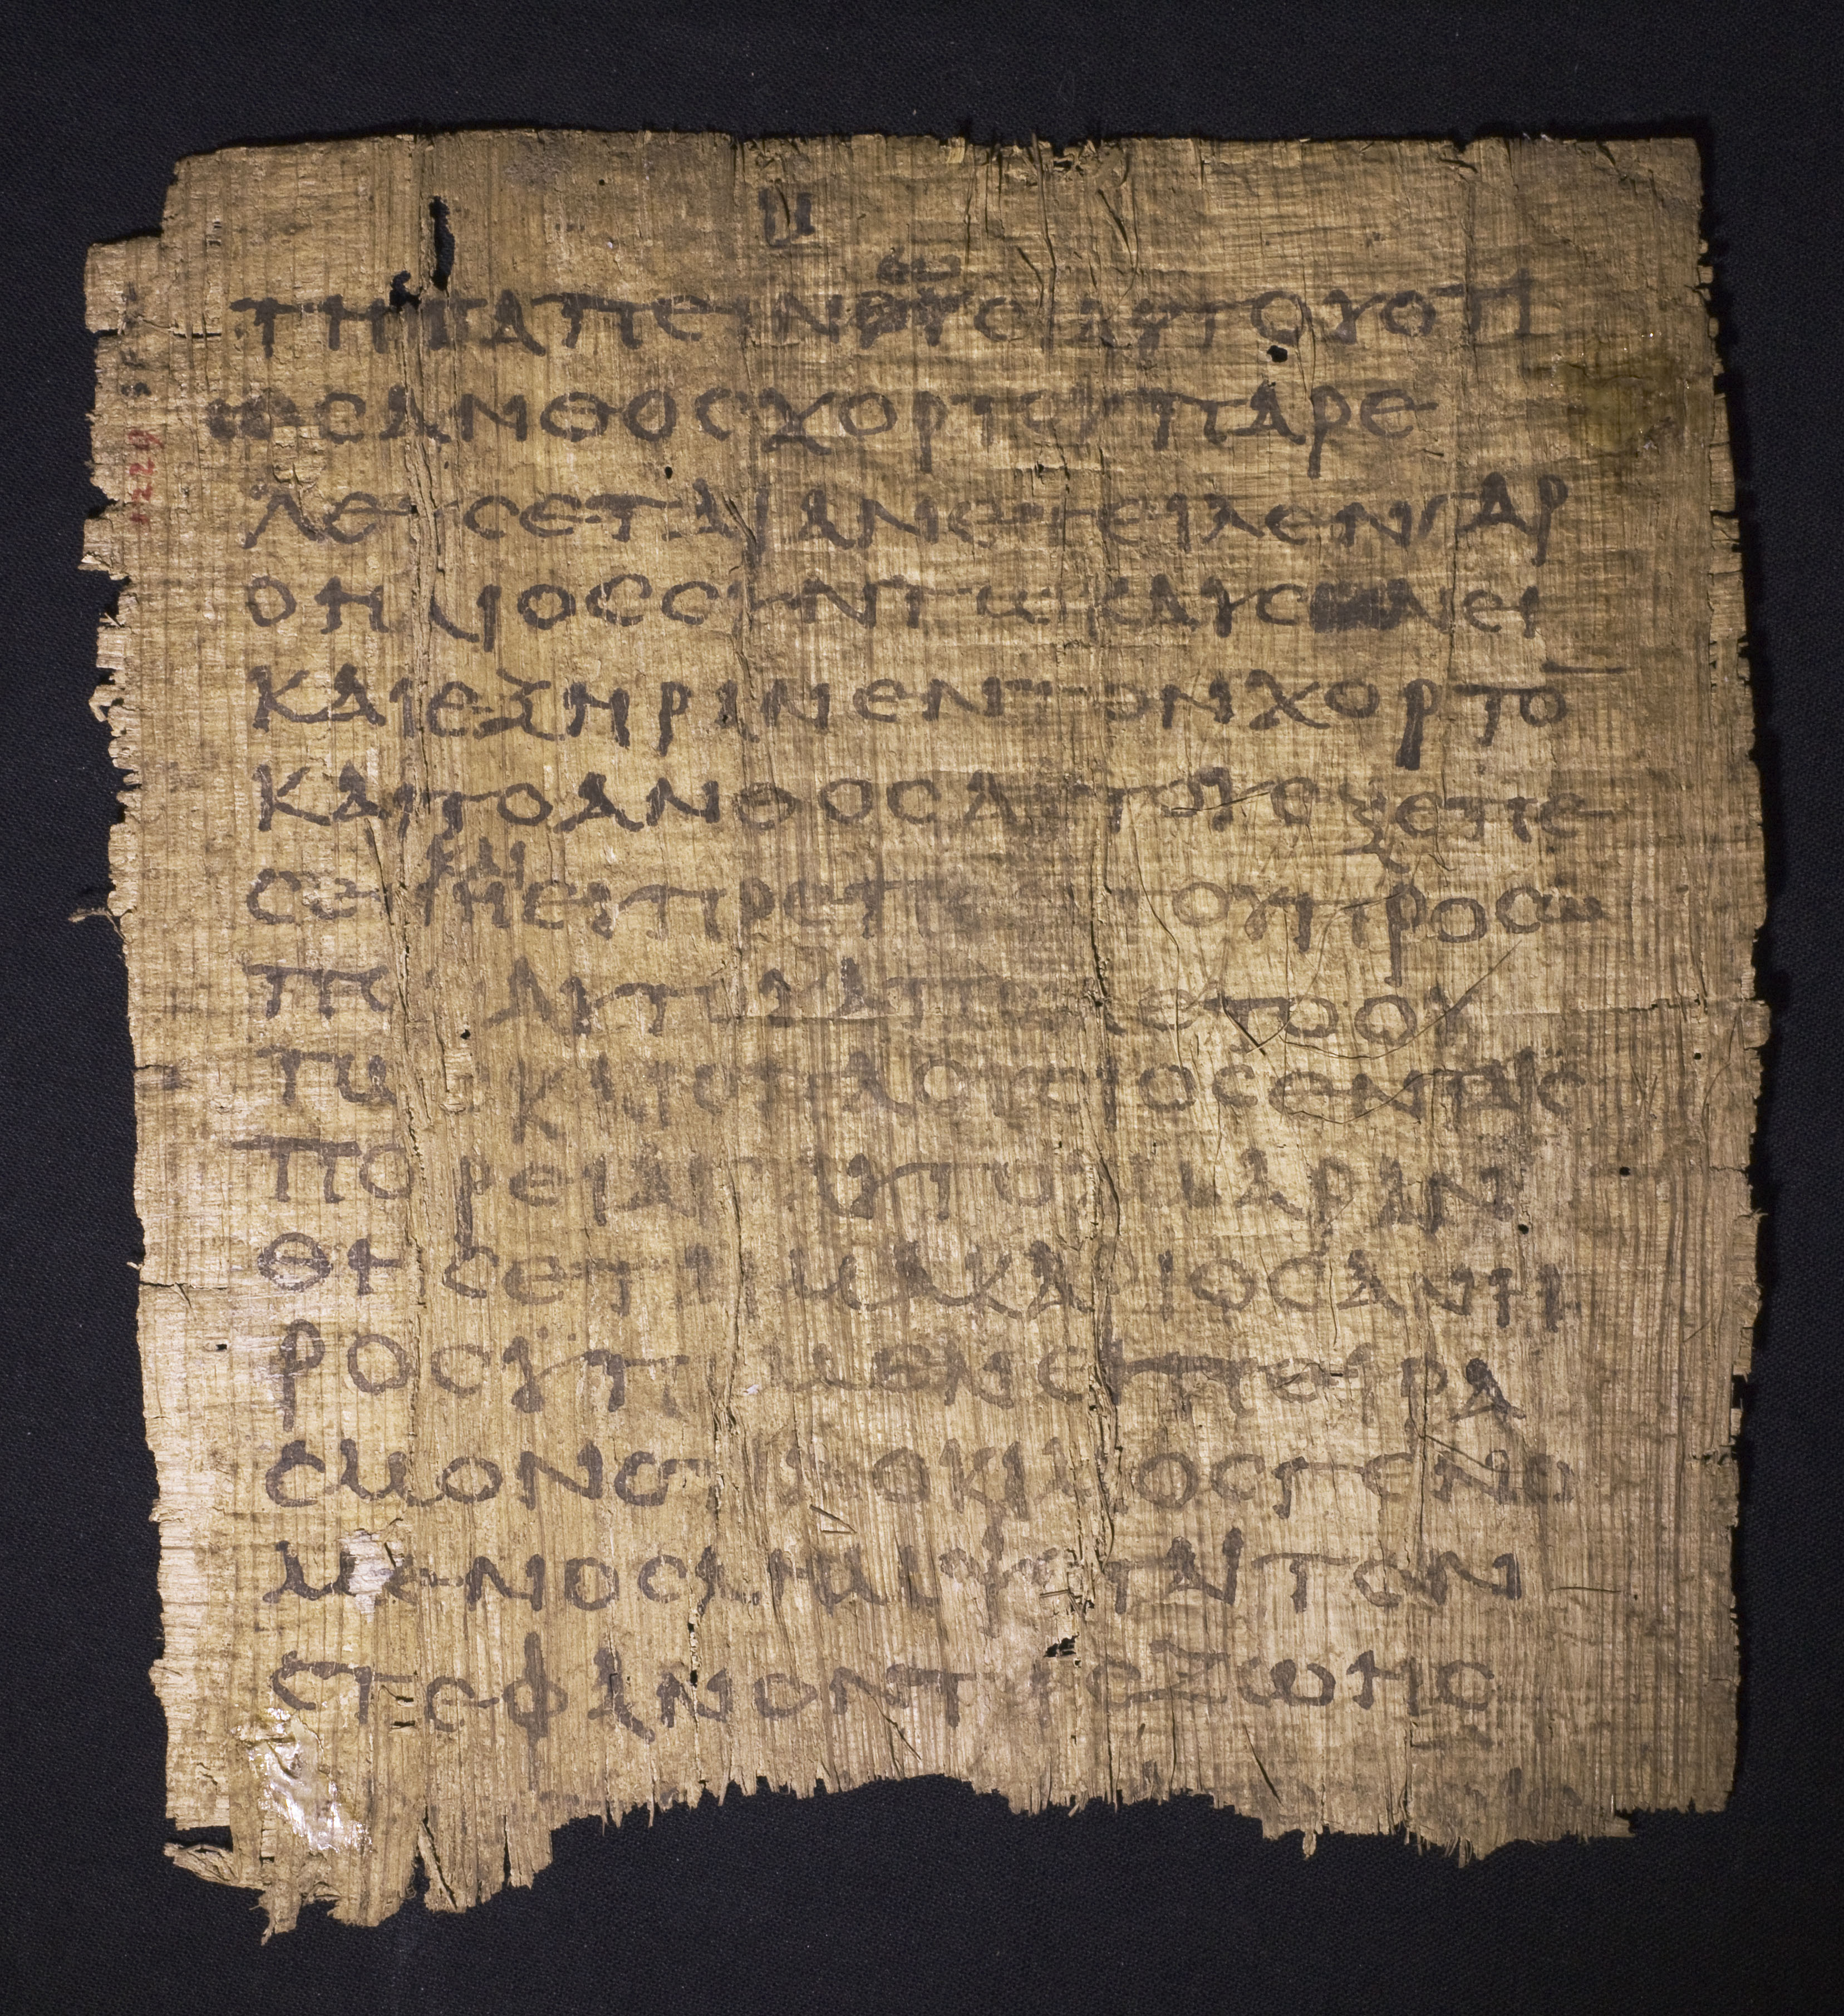 ΤΗΤΑΠΕΙΝωϹΕΙΑΥΤΟΥΟΤΙ
ωϹΑΝΘΟϹΧΟΡΤΟΥΠΑΡΕ
ΛΕΥϹΕΤΑΙΑΝΕΤΕΙΛΕΝΓΑΡ
ΟΗΛΙΟϹϹΥΝΤωΚΑΥϹωΝΕΙ
ΚΑΙΕΞΗΡΑΝΕΝΤΟΝΧΟΡΤΟ̅
ΚΑΙΤΟΑΝΘΟϹΑΥΤΟΥΕΞΕΠΕ
ϹΕΝΚΑΙΗΕΥΠΡΕΠΕΙΑΤΟΥΠΡΟϹω
ΠΟΥΑΥΤΟΥΑΠωΛΕΤΟΟΥ
ΤωϹΚΑΙΟΠΛΟΥϹΙΟϹΕΝΤΑΙϹ
ΠΟΡΕΙΑΙϹΑΥΤΟΥΜΑΡΑΝ
ΘΗϹΕΤΑΙΜΑΚΑΡΙΟϹΑΝΗ
ΡΟϹΥΠΟΜΕΝΕΙΠΕΙΡΑ
ϹΜΟΝΟΤΙΔΟΚΙΜΟϹΓΕΝΟ
ΜΕΝΟϹΛΗΜΨΕΤΑΙΤΟΝ
ϹΤΕΦΑΝΟΝΤΗϹΖωΗϹΟ
1229